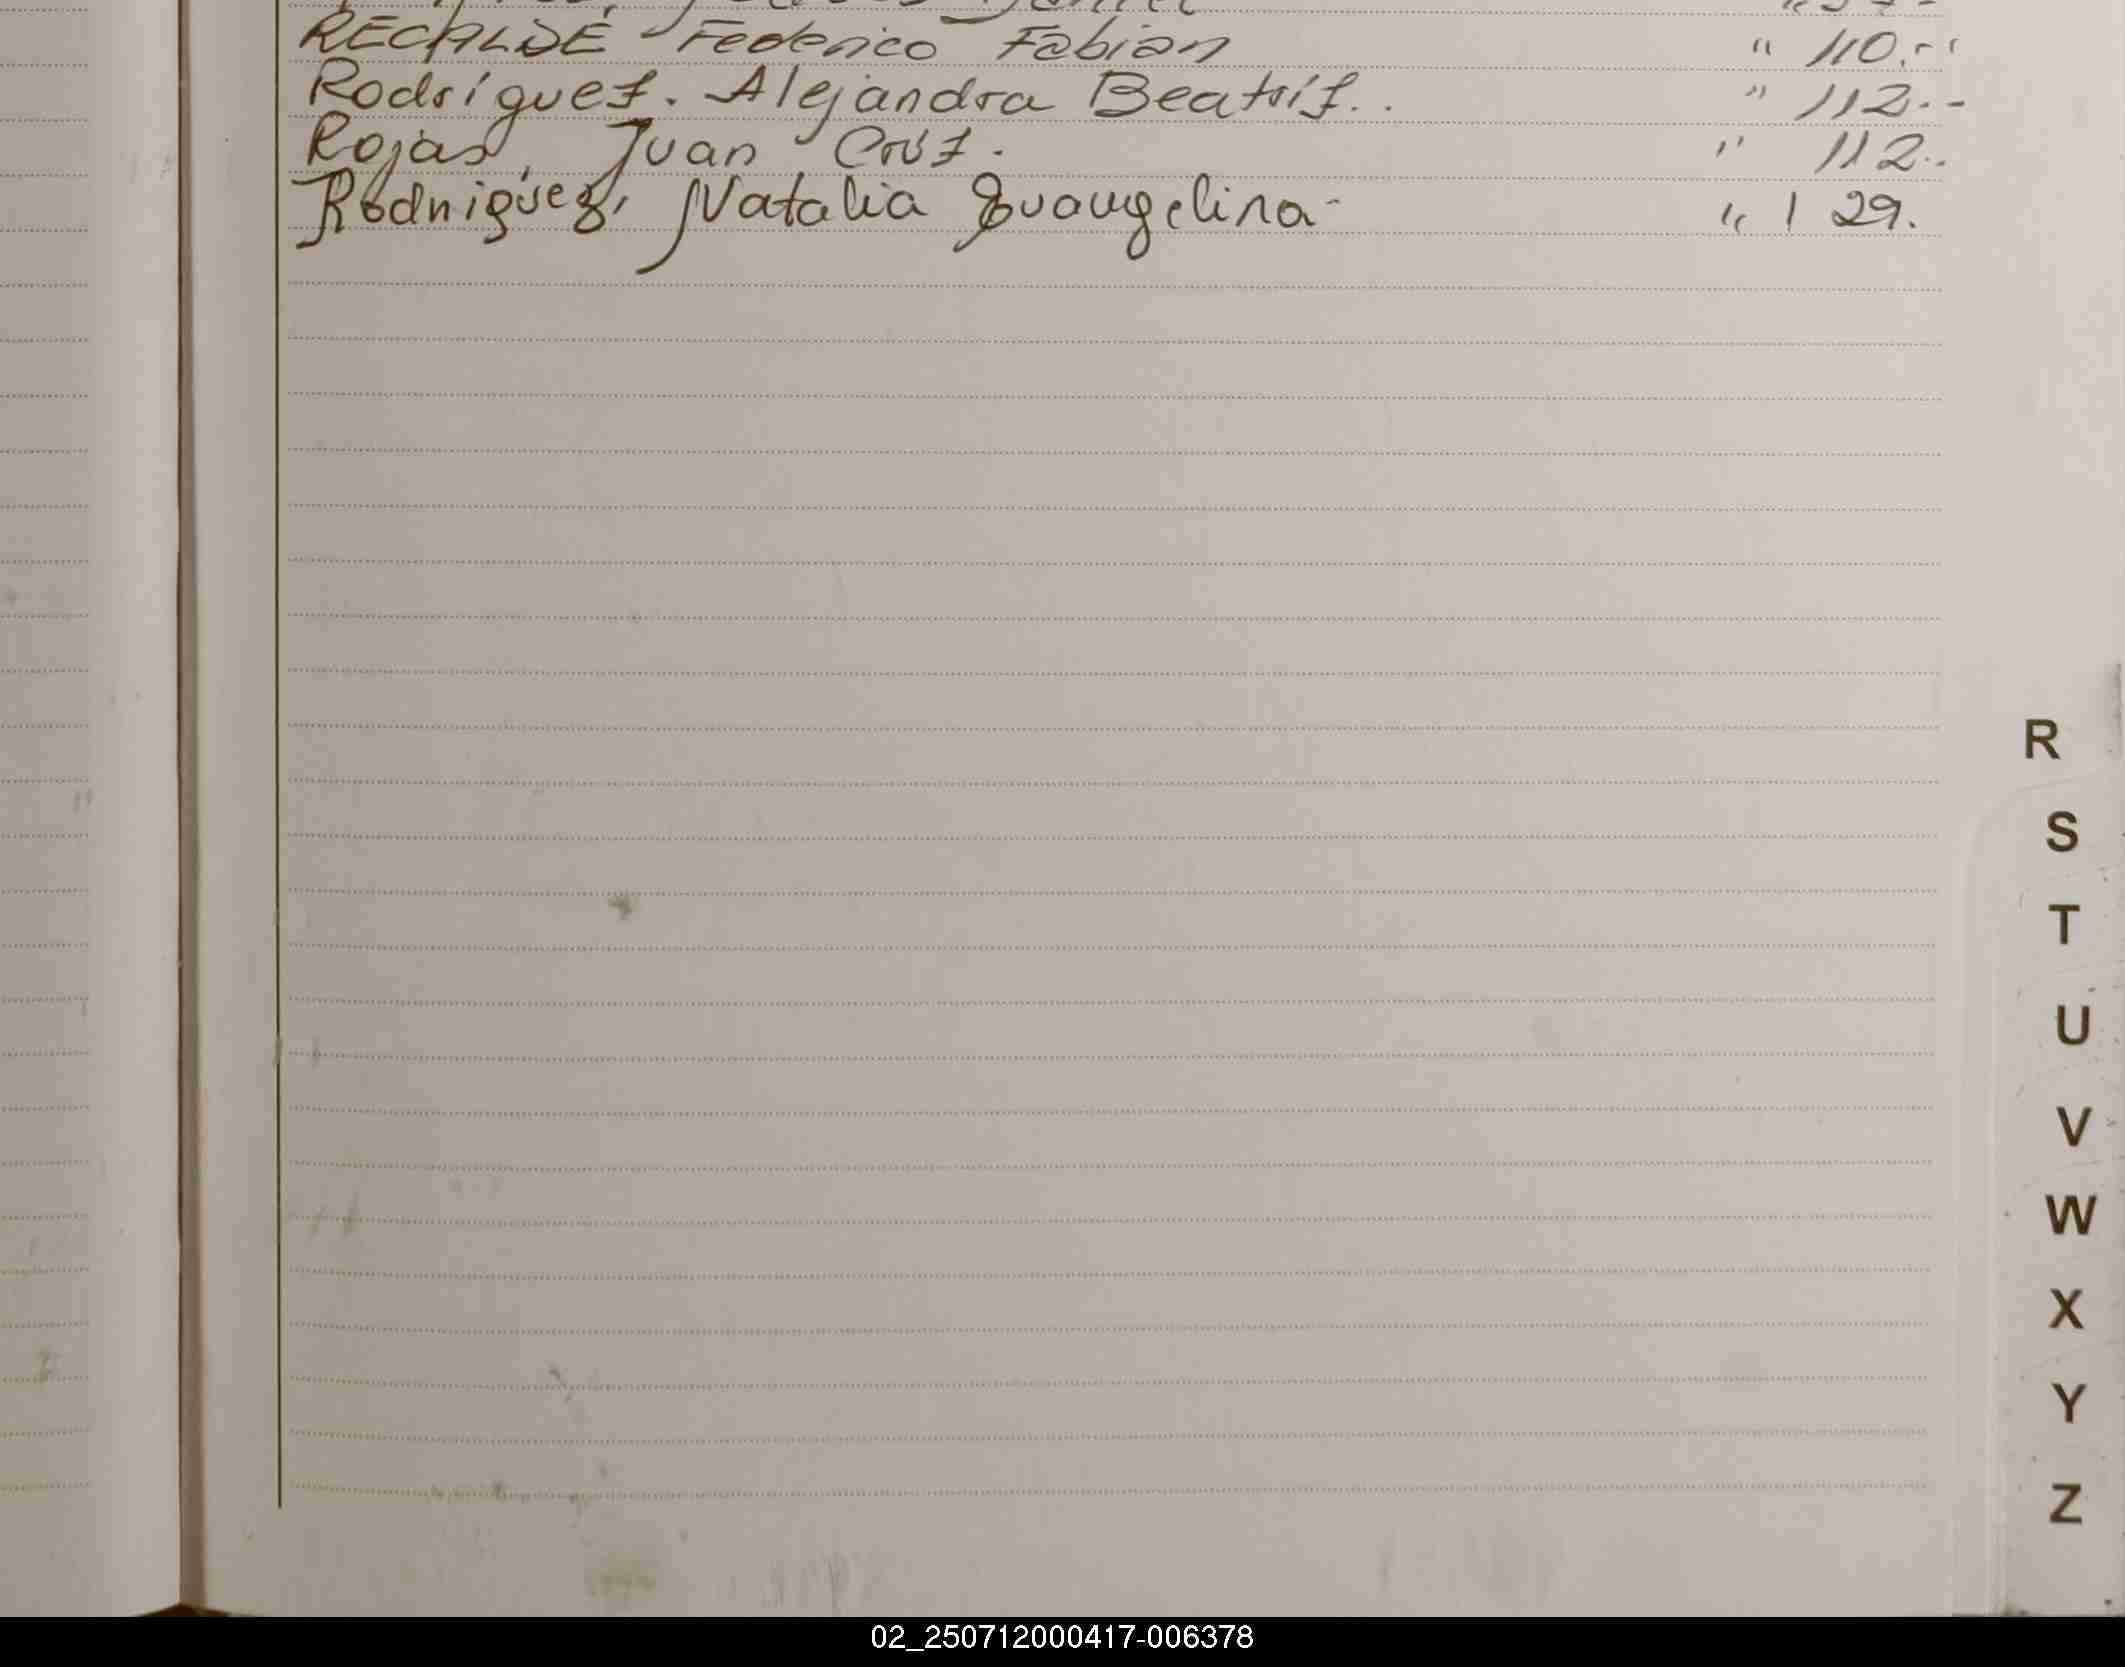 RECALDE Federico Fabian " 110.-
Rodríguez. Alejandra Beatriz.. " 112.-
Rojas, Juan Cruz. " 112..
Rodriguez, Natalia Evangelina- " 129.
R
S
T
U
V
W
X
Y
Z
02_250712000417-006378